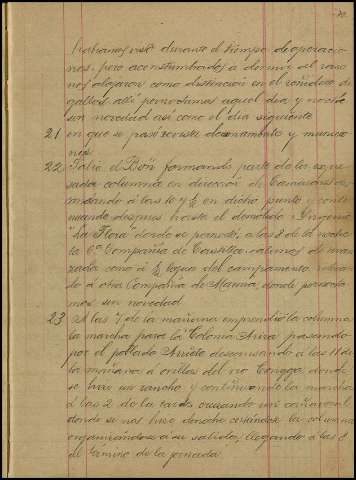 habiamos visto durante el tiempo de operacio-
nes, pero acostumbrados a dormir al raso
nos alojaron como distincion en el reñidero de
gallos, alli pernoctamos aquel dia y noche
sin novedad asi como el dia siguiente
21 en que se pasó revista de armamento y municio-
nes
22 Salio el Bon formando parte de la expre-
sada columna en direccion de Camarones,
á las 10 y ½ en dicho punto y conti-
nuando despues hasta el demolido Ingenio
"La Flora" donde se pernoctó, a las 8 de la noche
la 6a Compañia de Castilla salimos de avan-
zada como á ½ legua del campamento
do á otra Compañia de Marina, donde pernocta-
mos sin novedad.
23 A las 7 de la mañana emprendio la columna
la marcha para la Colonia pasando
por el poblado Arriete descansando a las 11 de
la mañana á orillas del rio donde
se hizo un rancho y continuando la marcha
á las 2 de la tarde, cruzando un cañaveral
donde se nos hizo la columna
á su salida, llegando á las 5
al termino de la jornada